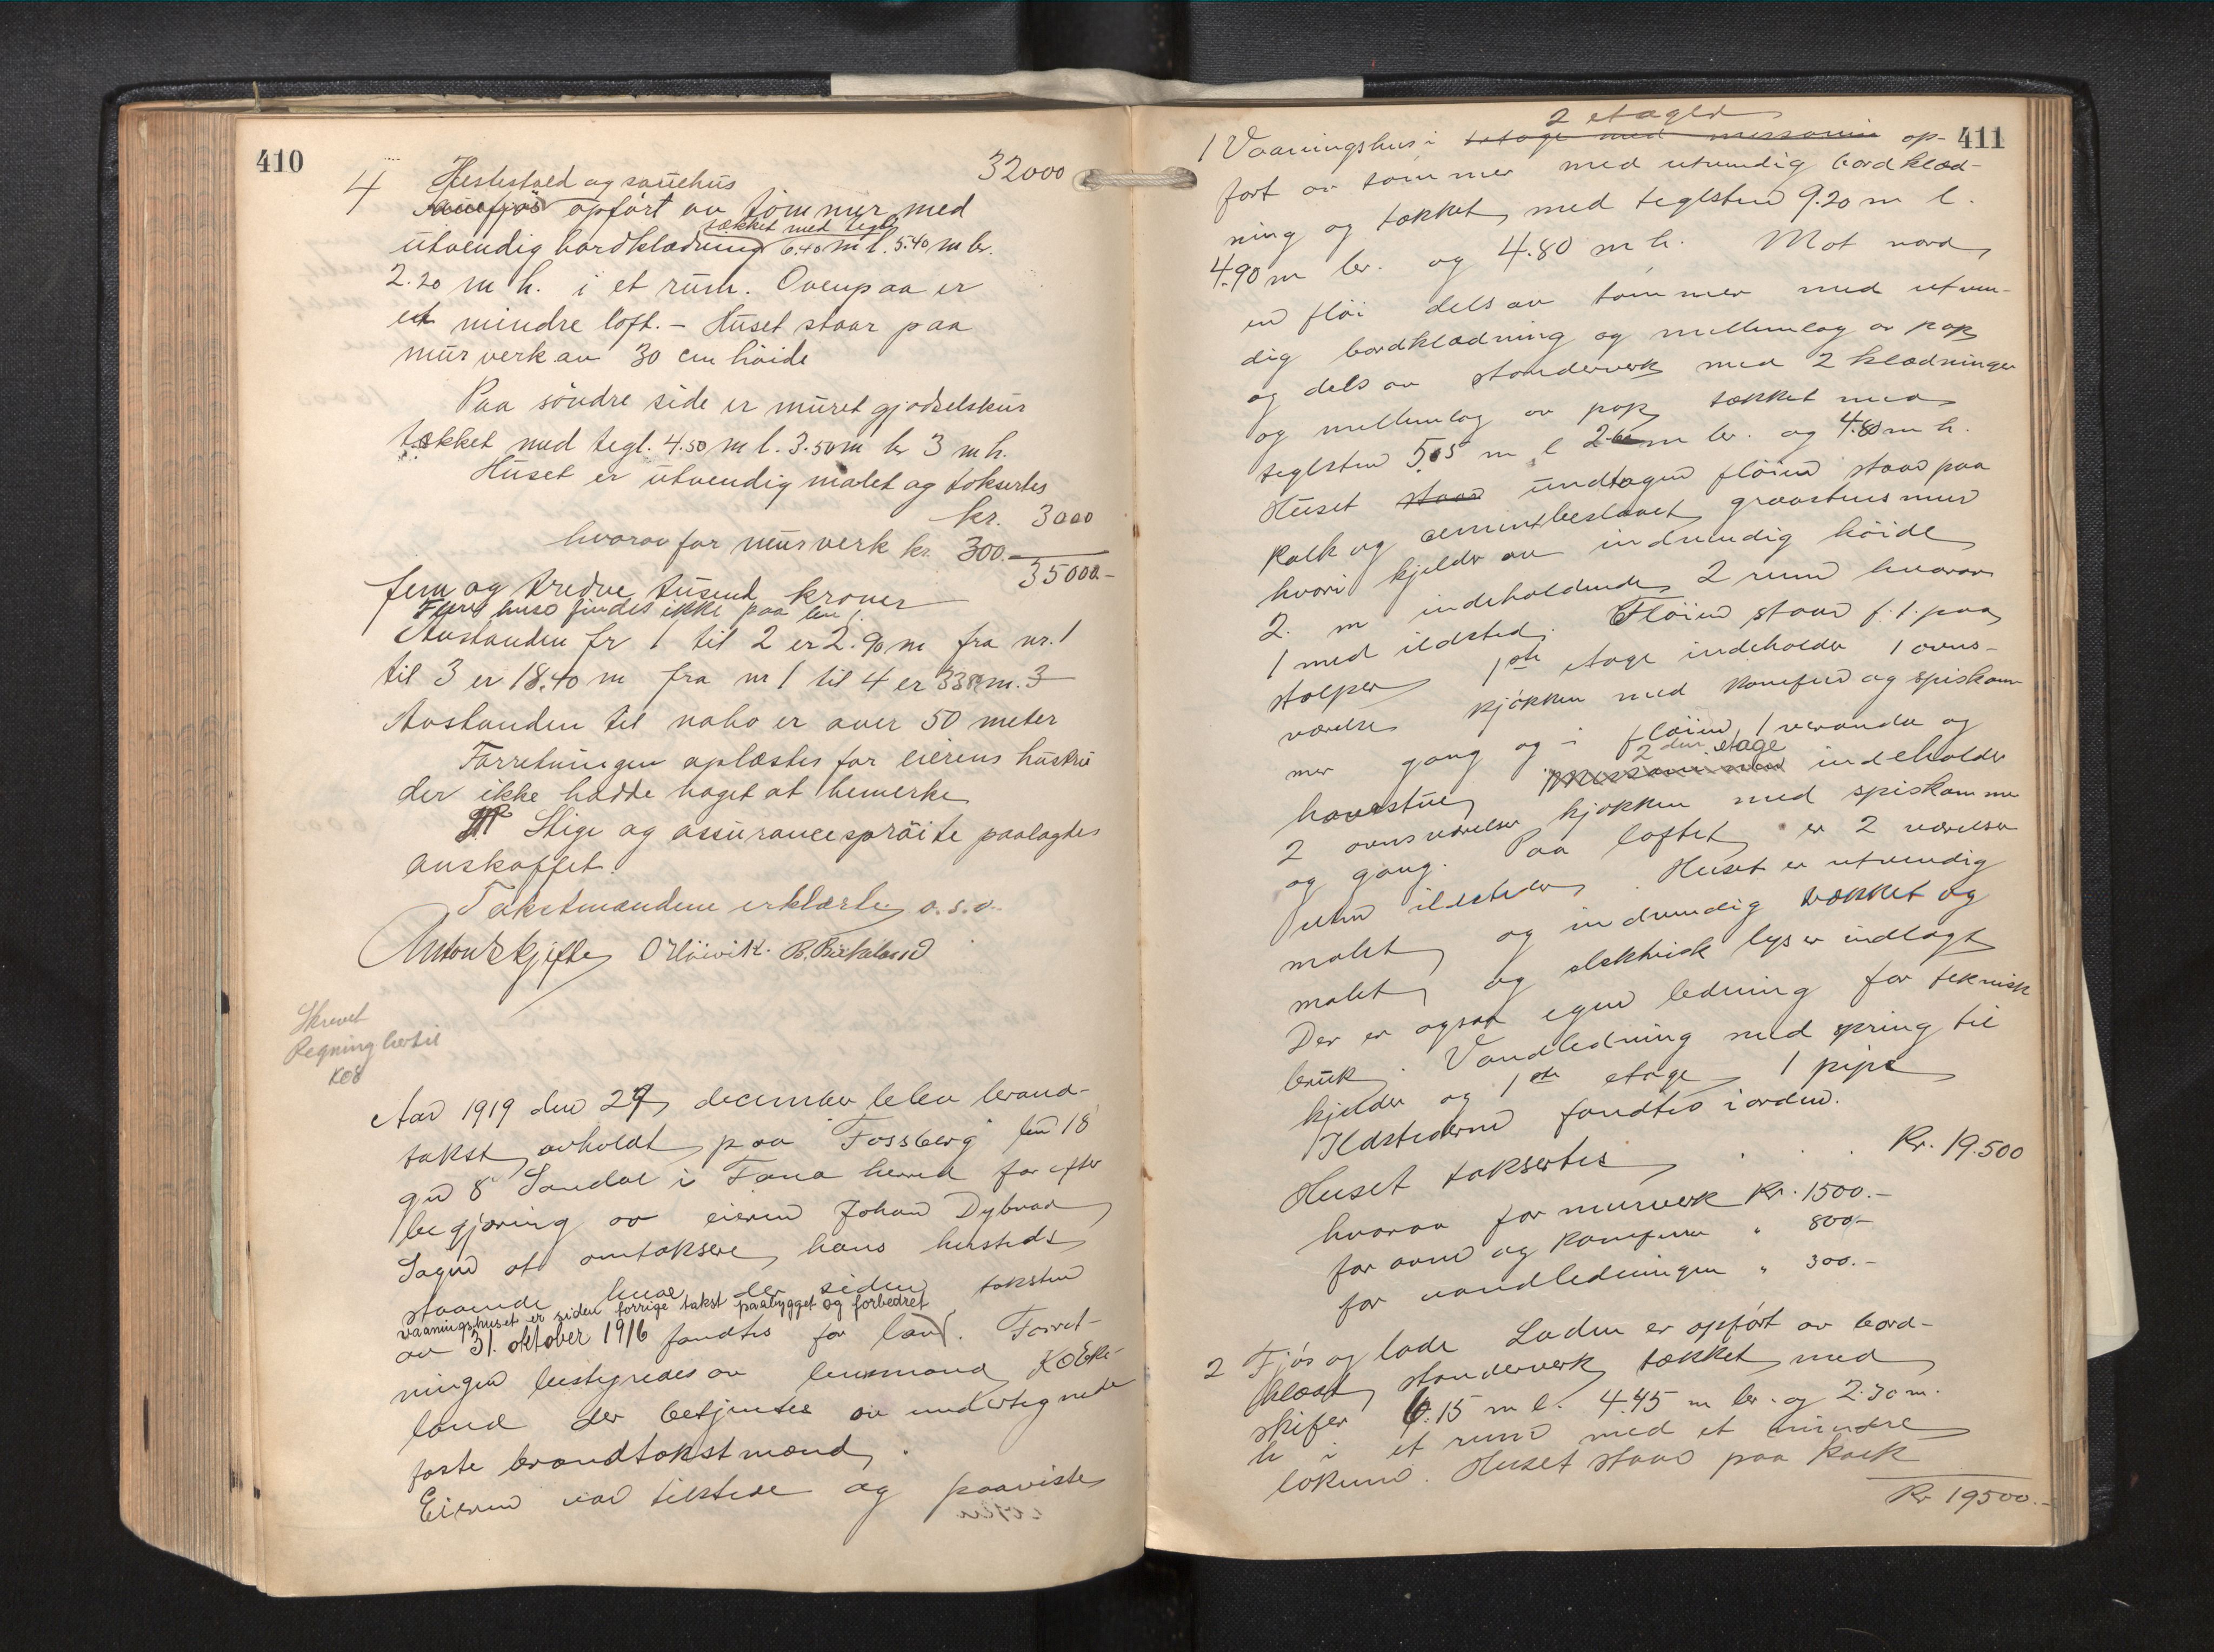 410
32000
4 Hestestald og sauehus
opført av tømmer med
tækket med tegl
utvendig bordklædning 6.40 m l. 5.40 m br.
2.20 m h. i et rum. Ovenpaa er
et mindre loft. - Huset staar paa
mur verk av 30 cm høide
Paa søndre side er muret gjødselshus
tækket med tegl. 4.50 m l. 3.50 m br 3 m h.
Huset er utvendig malet og taksertes
kr. 3000
hvorav for murverk kr. 300.-
35000.-
fem og tredve tusend kroner
Flere huse findes ikke paa bru
Avstanden fr 1 til 2 er 2.90 m fra nr. 1
til 3 er 18.40 m fra nr 1 til 4 er m.
Avstanden til nabo er over 50 meter
Forretningen oplæstes for eierens hustru
der ikke hadde noget at bemerke
Stige og assurancesprøite paalagdes
anskaffet.
Takstmændene erklærte o.s.v.
Anton Skjefte O Høivik. B. Birkeland
Skrevet
Regning hertil
KOB
Aar 1919 den 27 december blev brand-
takst avholdt paa "Fossberg" bn 18
gn 8 Sandal i Fana herred for efter
begjæring av eieren Johan Dybvad
Sagen at omtaksere hans husteds
staaende huse der siden taksten
vaaningshuset er siden forrige takst paabygget og forbedret
av 31. oktober 1916 fandtes for lav. Forret-
ningen bestyredes av lensmand K O Birke-
land der betjentes av undertegnede
faste brandtakstmænd.
Eieren var tilstede og paaviste
411
2 etager
1 Vaaningshus i etage med messanin op-
ført av tømmer med utvendig bordklæd-
ning og tækket med teglsten 9.20 m l.
4.90 m br. og 4.80 m h. Mot nord
en fløi dels av tømmer med utven-
dig bordklædning og mellemlag av pap
og dels av standerverk med 2 klædninger
og mellemlag av pap tækket med
teglsten 5.05 m l m br. og 4.80 m h.
Huset staar undtagen fløien staar paa
kalk og cementbeslaaet graastensmur
hvori kjelder av indvendig høide
2. m indeholdende 2 rum hvorav
1 med ildsted. Fløien staar f. 1. paa
stolper 1ste etage indeholder 1 ovns-
værelse kjøkken med komfur og spiskam-
mer gang og i fløien 1 veranda og
2den etage
havestue indeholder
2 ovnsværelser kjøkken med spiskammer
og gang. Paa loftet er 2 værelser
uten ildsteder. Huset er utvendig
malet og indvendig trækket og
malet og elektrisk lys er indlagt
Der er ogsaa egen ledning for teknisk
bruk. Vandledning med spring til
kjelder og 1ste etage 1 pipe
Ildstederne fandtes i orden.
Huset taksertes . . . Kr. 19.500
hvorav for murverk kr. 1500.-
for ovne og komfurer " 800.-
for vandledningen " 300.-
2 Fjøs og lade Laden er opført av bord-
klædt standerverk tækket med
skifer 6.15 m l. 4.45 m br. og 2.30 m.
h i et rum med et mindre
lokum. Huset staar paa kalk
Kr 19500.-